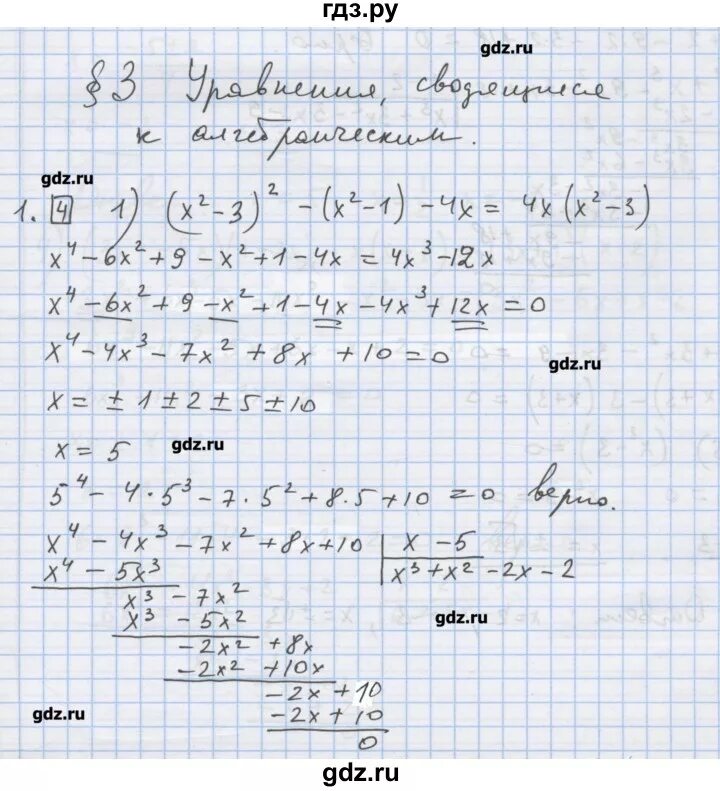 гдз.ру
gdz.ru
§ 3 Уравнения, сводящиеся
к алгебраическим.
gdz.ru
1. 4 1) (x² - 3)² - (x² - 1) - 4x = 4x (x² - 3)
x⁴ - 6x² + 9 - x² + 1 - 4x = 4x³ - 12x
x⁴ - 6x² + 9 - x² + 1 - 4x - 4x³ + 12x = 0
x⁴ - 4x³ - 7x² + 8x + 10 = 0
gdz.ru
x = ± 1 ± 2 ± 5 ± 10
x = 5 gdz.ru
5⁴ - 4 · 5³ - 7 · 5² + 8 · 5 + 10 = 0 верно.
x⁴ - 4x³ - 7x² + 8x + 10 | x - 5
x⁴ - 5x³ x³ + x² - 2x - 2
x³ - 7x²
x³ - 5x² gdz.ru
-2x² + 8x
-2x² + 10x
-2x + 10
gdz.ru -2x + 10
0
gdz.ru